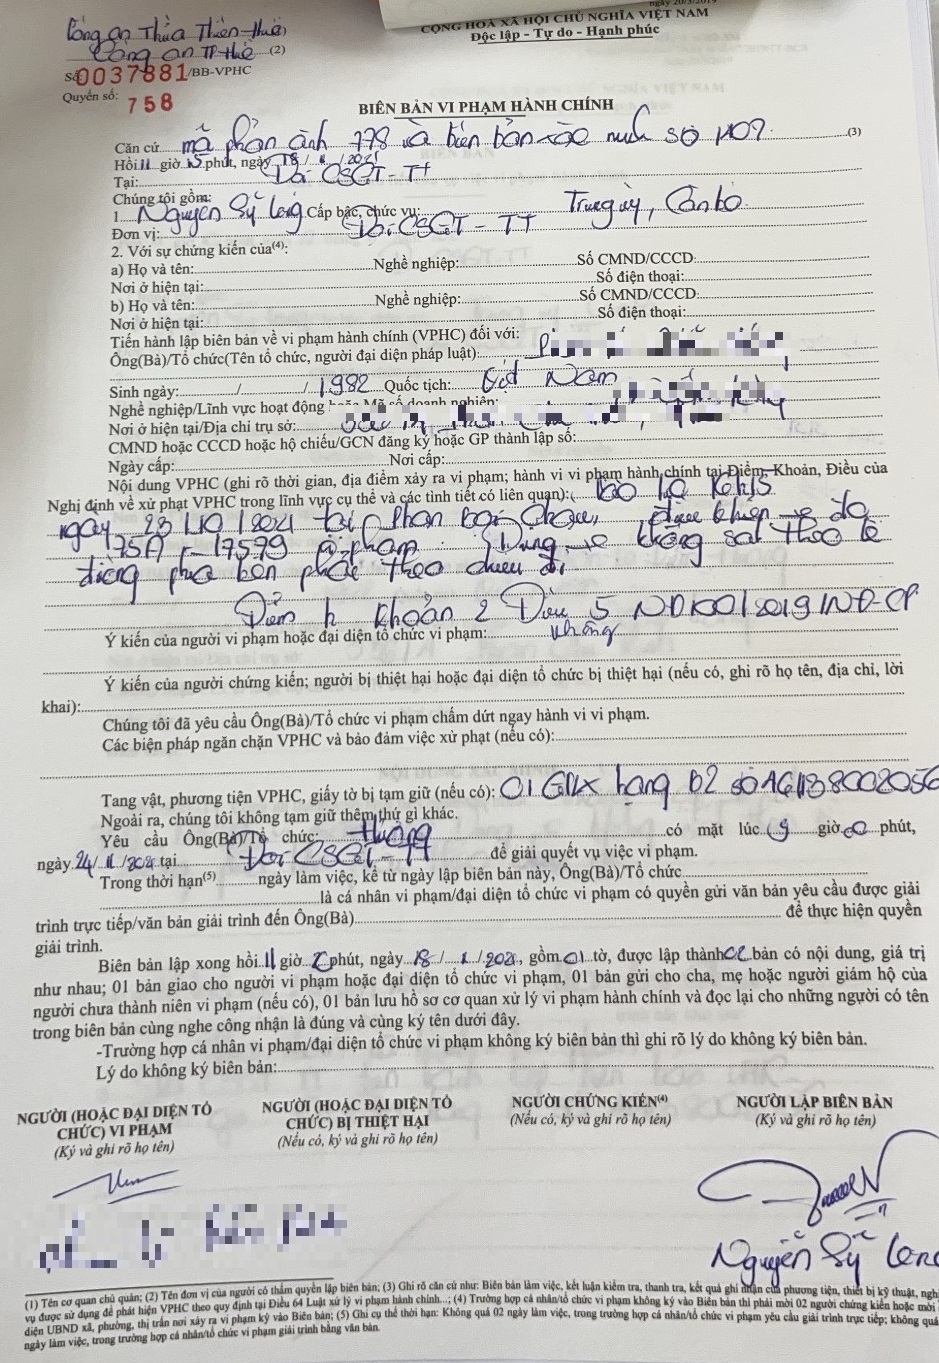 Công an Thừa Thiên Huế
Công an TP Huế (2)
Số 0037881/BB-VPHC
Quyển số: 758
CỘNG HOÀ XÃ HỘI CHỦ NGHĨA VIỆT NAM
Độc lập - Tự do - Hạnh phúc
BIÊN BẢN VI PHẠM HÀNH CHÍNH
Căn cứ mã phản ánh 778 và biên bản xác minh số (3)
Hồi 11 giờ 15 phút, ngày 18/11/2021
Tại: Đội CSGT-TT
Chúng tôi gồm:
1. Nguyễn Sỹ Long Cấp bậc, chức vụ: Trung úy, Cán bộ
Đơn vị: Đội CSGT-TT
2. Với sự chứng kiến của(4):
a) Họ và tên: Nghề nghiệp: Số CMND/CCCD:
Nơi ở hiện tại: Số điện thoại:
b) Họ và tên: Nghề nghiệp: Số CMND/CCCD:
Nơi ở hiện tại: Số điện thoại:
Tiến hành lập biên bản về vi phạm hành chính (VPHC) đối với:
Ông(Bà)/Tổ chức(Tên tổ chức, người đại diện pháp luật):
Sinh ngày: / /1982 Quốc tịch: Việt Nam
Nghề nghiệp/Lĩnh vực hoạt động
Nơi ở hiện tại/Địa chỉ trụ sở:
CMND hoặc CCCD hoặc hộ chiếu/GCN đăng ký hoặc GP thành lập số:
Ngày cấp: Nơi cấp:
Nội dung VPHC (ghi rõ thời gian, địa điểm xảy ra vi phạm; hành vi vi phạm hành chính tại Điểm, Khoản, Điều của
Nghị định về xử phạt VPHC trong lĩnh vực cụ thể và các tình tiết có liên quan):
ngày 23/10/2021 tại Phan Bội Châu, điều khiển xe
75A-17599 vi phạm: Dừng xe không sát theo lề
đường phía bên phải theo chiều đi
Điểm h Khoản 2 Điều 5 NĐ100/2019/NĐ-CP
Ý kiến của người vi phạm hoặc đại diện tổ chức vi phạm: không
Ý kiến của người chứng kiến; người bị thiệt hại hoặc đại diện tổ chức bị thiệt hại (nếu có, ghi rõ họ tên, địa chỉ, lời
khai):
Chúng tôi đã yêu cầu Ông(Bà)/Tổ chức vi phạm chấm dứt ngay hành vi vi phạm.
Các biện pháp ngăn chặn VPHC và bảo đảm việc xử phạt (nếu có):
Tang vật, phương tiện VPHC, giấy tờ bị tạm giữ (nếu có): 01 GPLX hạng B2 số
Ngoài ra, chúng tôi không tạm giữ thêm thứ gì khác.
Yêu cầu Ông(Bà)/Tổ chức: có mặt lúc 9 giờ 00 phút,
ngày 24/11/2021 tại Đội CSGT-TT để giải quyết vụ việc vi phạm.
Trong thời hạn(5) ngày làm việc, kể từ ngày lập biên bản này, Ông(Bà)/Tổ chức
là cá nhân vi phạm/đại diện tổ chức vi phạm có quyền gửi văn bản yêu cầu được giải
trình trực tiếp/văn bản giải trình đến Ông(Bà) để thực hiện quyền
giải trình.
Biên bản lập xong hồi 11 giờ phút, ngày 18/11/2021, gồm 01 tờ, được lập thành 02 bản có nội dung, giá trị
như nhau; 01 bản giao cho người vi phạm hoặc đại diện tổ chức vi phạm, 01 bản gửi cho cha, mẹ hoặc người giám hộ của
người chưa thành niên vi phạm (nếu có), 01 bản lưu hồ sơ cơ quan xử lý vi phạm hành chính và đọc lại cho những người có tên
trong biên bản cùng nghe công nhận là đúng và cùng ký tên dưới đây.
-Trường hợp cá nhân vi phạm/đại diện tổ chức vi phạm không ký biên bản thì ghi rõ lý do không ký biên bản.
Lý do không ký biên bản:
NGƯỜI (HOẶC ĐẠI DIỆN TỔ NGƯỜI (HOẶC ĐẠI DIỆN TỔ NGƯỜI CHỨNG KIẾN(4) NGƯỜI LẬP BIÊN BẢN
CHỨC) VI PHẠM CHỨC) BỊ THIỆT HẠI (Nếu có, ký và ghi rõ họ tên) (Ký và ghi rõ họ tên)
(Ký và ghi rõ họ tên) (Nếu có, ký và ghi rõ họ tên)
Nguyễn Sỹ Long
(1) Tên cơ quan chủ quản; (2) Tên đơn vị của người có thẩm quyền lập biên bản; (3) Ghi rõ căn cứ như: Biên bản làm việc, kết luận kiểm tra, thanh tra, kết quả ghi nhận của phương tiện, thiết bị kỹ thuật, ngh
vụ được sử dụng để phát hiện VPHC theo quy định tại Điều 64 Luật xử lý vi phạm hành chính...; (4) Trường hợp cá nhân/tổ chức vi phạm không ký vào Biên bản thì phải mời 02 người chứng kiến hoặc mời
diện UBND xã, phường, thị trấn nơi xảy ra vi phạm ký vào Biên bản; (5) Ghi cụ thể thời hạn: Không quá 02 ngày làm việc, trong trường hợp cá nhân/tổ chức vi phạm yêu cầu giải trình trực tiếp; không quá
ngày làm việc, trong trường hợp cá nhân/tổ chức vi phạm giải trình bằng văn bản.